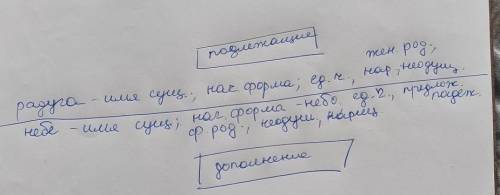 подлежащие
жен. род.,
радуга - имя сущ.; нач форма; ед. ч., нар, неодуш.
небе - имя сущ; нач. форма - небо, ед. ч., предлож.
ср род., неодуш, нариц падеж.
дополнение